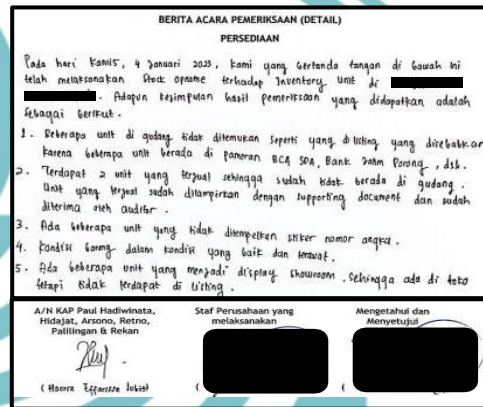 BERITA ACARA PEMERIKSAAN (DETAIL)
PERSEDIAAN
Pada hari Kamis, 4 Januari 2023, kami yang bertanda tangan di bawah ini
telah melaksanakan Stock opname terhadap Inventory unit di
. Adapun kesimpulan hasil pemeriksaan yang didapatkan adalah
sebagai berikut.
1. Beberapa unit di gudang tidak ditemukan seperti yang di listing yang disebabkan
karena beberapa unit berada di pameran BCA SDA, Bank Jatim Porong, dsb.
2. Terdapat 2 unit yang terjual sehingga sudah tidak berada di gudang.
Unit yang terjual sudah dilampirkan dengan supporting document dan sudah
diterima oleh auditor.
3. Ada beberapa unit yang tidak ditempelkan stiker nomor angka.
4. Kondisi barang dalam kondisi yang baik dan terawat.
5. Ada beberapa unit yang menjadi display showroom. Sehingga ada di toko
tetapi tidak terdapat di listing.
A/N KAP Paul Hadiwinata,
Hidajat, Arsono, Retno,
Palilingan & Rekan
Staf Perusahaan yang
melaksanakan
Mengetahui dan
Menyetujui